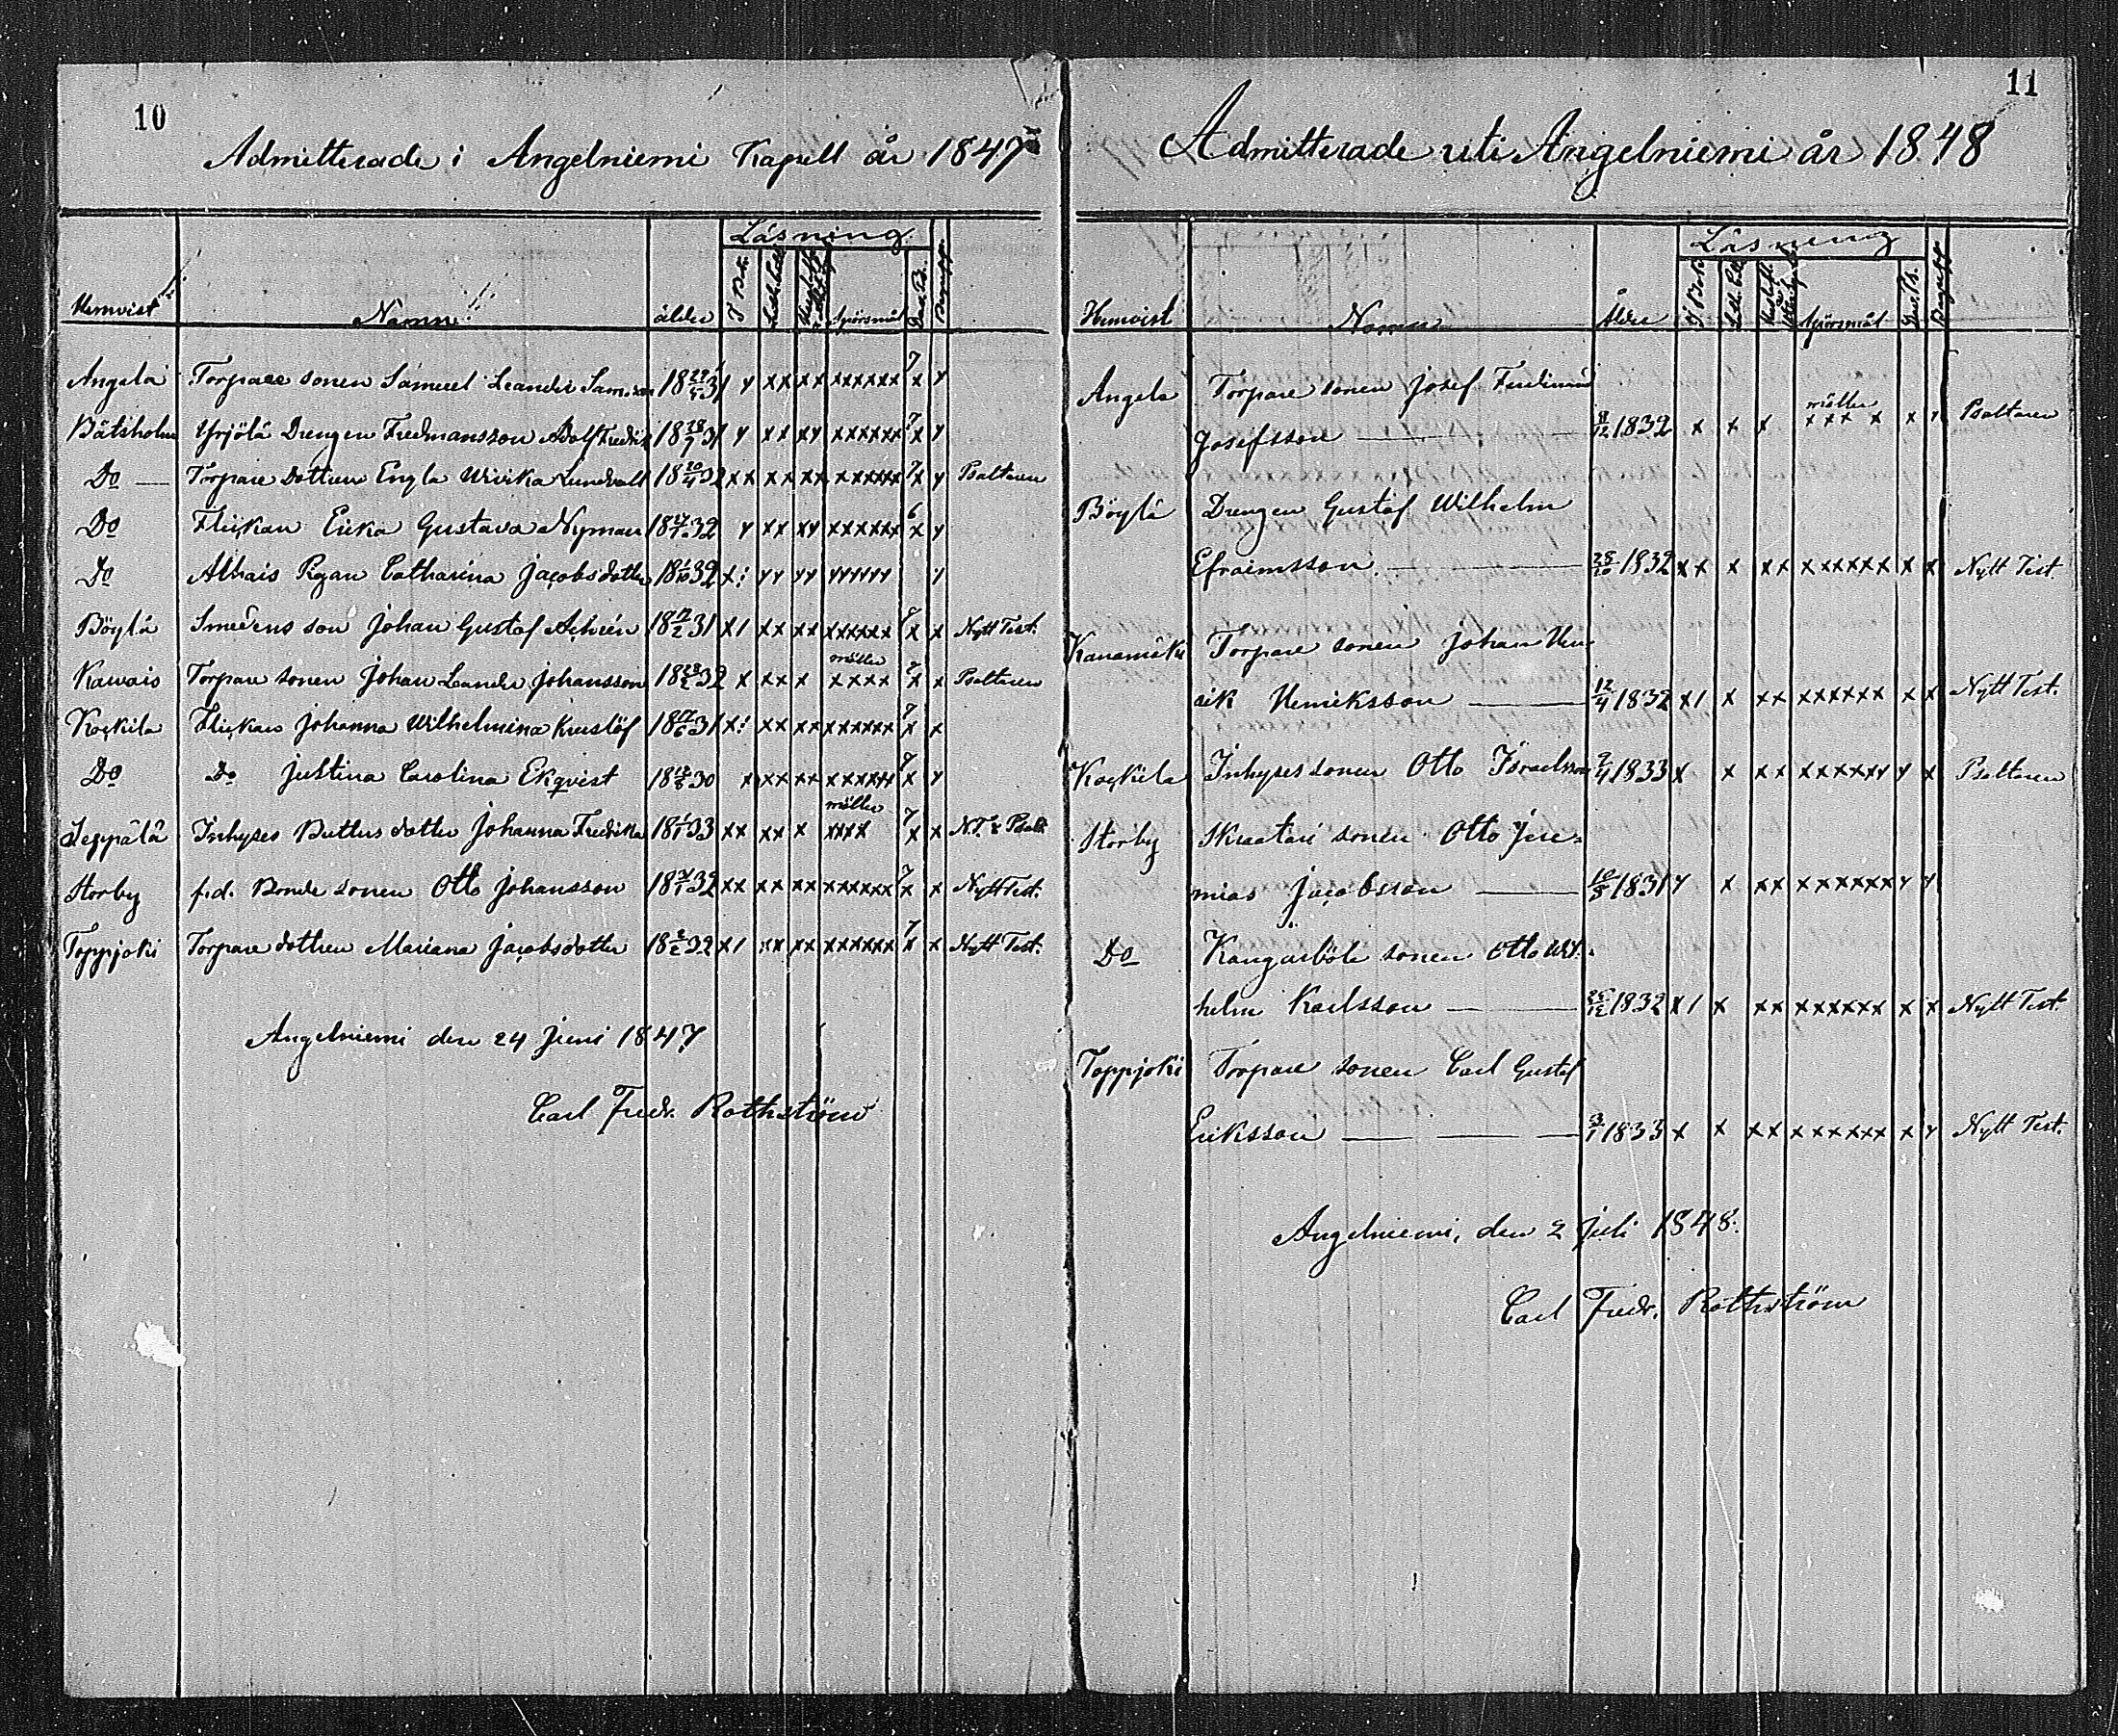 10
Admitterade i Angelniemi Kapell år 1847
Läsning
Hemvist Namn ålder Spörsmål
Angela Torpare sonen Samuel Leander 18 31 y xx xx xxxxxx 7 x y
Båtsholm Yrjölä Drengen Fredmansson Adolf Fredrik 18 31 y xx xy xxxxxx 7 x y
Do Torpare dottren Engla Wivika Lundvall 18 20/4 32 xx xx xx xxxxxx 7 x y Psaltaren
Do Flickan Erika Gustava Nyman 18 32 y xx xy xxxxxx 6 x y
Do Alhais Pigan Catharina Jacobsdotter 18 32 x: yy yy yyyyyy y
Böylä Smedens son Johan Gustaf 18 31 x1 xx xx xxxxxx 8 x x Nytt Test.
Kawais Torpare sonen Johan Leander Johansson 18 32 x xx x xxxx 7 x x Psaltaren
Kockila Flickan Johanna Wilhelmina 18 31 x: xx xx xxxxxx 7 x x
Do Do Justina Carolina Ekqvist 18 30 x xx xx 8 x y
Seppälä Inhyses dotter Johanna Fredrika 18 33 xx xx x xxxx 7 x x N.T. & Psalt.
Storby f.d. Bonde sonen Otto Johansson 18 32 xx xx xx xxxxxx 7 x x Nytt Test.
Toppjoki Torpare dottren Mariana Jacobsdotter 18 32 x1 xx xx xxxxxx 7 x x Nytt Test.
Angelniemi den 24 Juni 1847
Carl Fredr. Rothström
11
Admitterade uti Angelniemi år 1848
Läsning
Hemvist Namn Ålder I Bok Spörsmål
Angela Torpare sonen Josef Ferdinand
Josefsson 1832 x x x xxx x x Psaltaren
Böylä Drengen Gustaf Wilhelm
Efraimsson 28/10 1832 xx x xx xxxxxx x x Nytt Test.
Torpare sonen Johan Hen
rik Henriksson 12/4 1832 x1 x xx xxxxxx x x Nytt Test.
Kockila Inhyses sonen Otto Israelsson 9/4 1833 x x xx xxxxxy y x Psaltaren
Storby sonen Otto Jere=
mias Jacobsson 1831 y x xx xxxxxx y y
Do Kangarböle sonen Otto Wil.
helm Karlsson 1832 x1 x xx xxxxxx x x Nytt Test.
Toppjoki Torpare sonen Carl Gustaf
Eriksson 3/1 1833 x x xx xxxxxx x y Nytt Test.
Angelniemi, den 2 Juli 1848.
Carl Fredr. Rothström